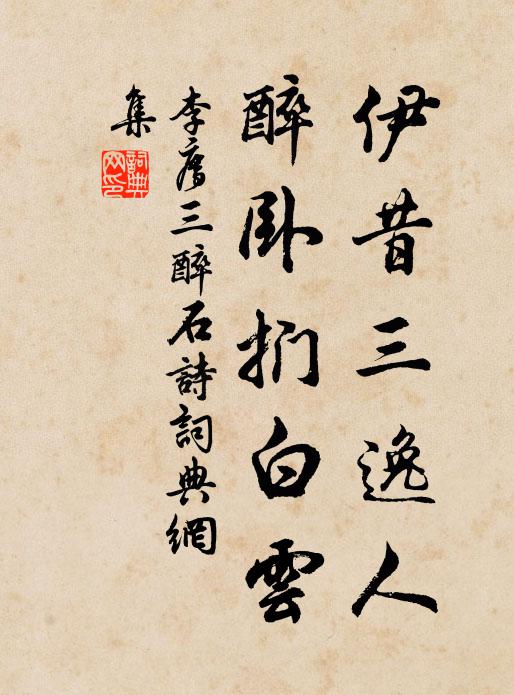 伊昔三逸人
醉卧捫白雲
李廌三醉石詩詞典網
集
詞典網印